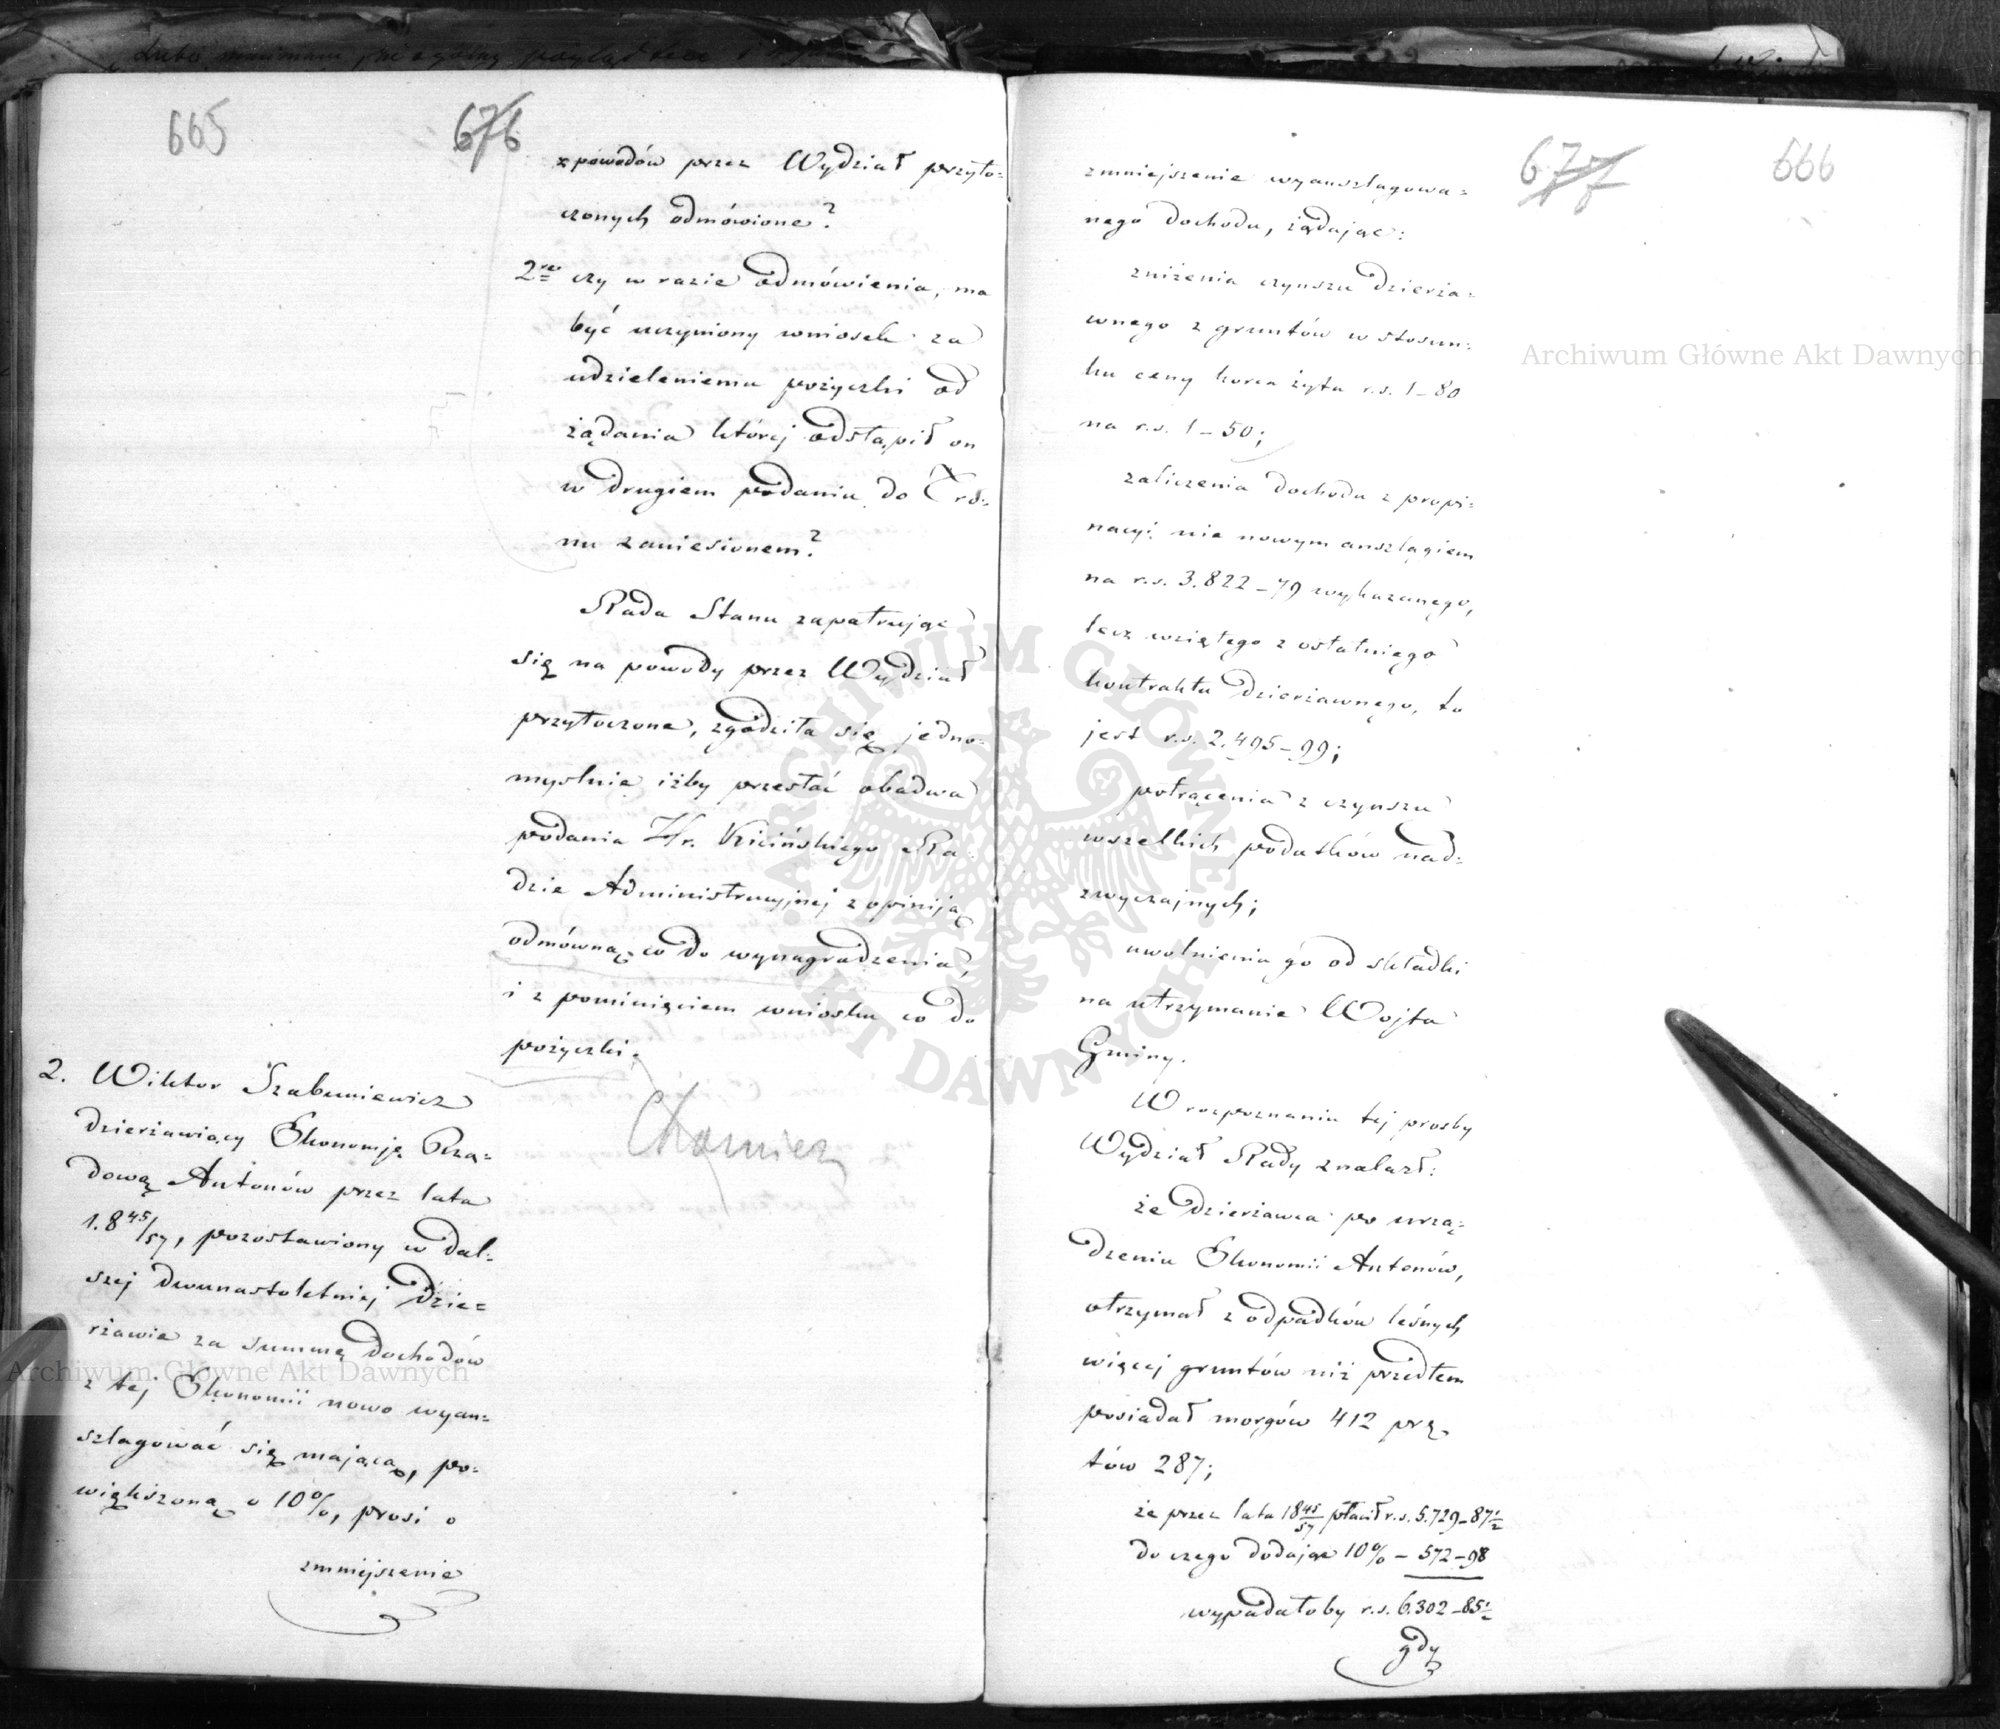 665
676
z powodów przez Wydział przyto-
czonych odmówione?
2re czy w razie odmówienia, ma
być uczyniony wniosek za
udzieleniem pożyczki od
żądania której odstąpił on
w drugiem podaniu do Tro-
nu zaniesionem?
Rada Stanu zapatrując
się na powody przez Wydział
przytoczone, zgodziła się jedno-
myślnie iżby przesłać obadwa
podania Hr. Kicińskiego Ra-
dzie Administracyjnej z opiniją
odmówną co do wynagrodzenia,
i z pominięciem wniosku co do
pożyczki.
2. Wiktor Szabuniewicz
dzierżawiący Ekonomję Rzą-
dową Antonów przez lata
1.845/57, pozostawiony w dal-
szej dwunastoletniej dzier-
żawie za summę dochodów
z tej Ekonomii nowo wyan-
szlagować się mającą, po-
większoną o 10%, prosi o
zmniejszenie
677
666
zmniejszenie wyanszlagowa-
nego dochodu, żądając:
zniżenia czynszu dzierża-
wnego z gruntów w stosun-
ku ceny korca żyta r.s. 1_80
na r.s. 1_50;
zaliczenia dochodu z propi-
nacyi nie nowym anszlagiem
na r.s. 3.822_79 wykazanego,
lecz wziętego z ostatniego
kontraktu dzierżawnego, to
jest r.s. 2.495_99;
potrącenia z czynszu
wszelkich podatków nad-
zwyczajnych;
uwolnienia go od składki
na utrzymanie Wojta
Gminy.
W rozpoznaniu tej prosby
Wydział Rady znalazł:
że dzierżawca po urzą-
dzeniu Ekonomii Antonów,
otrzymał z odpadków leśnych
więcej gruntów niż przedtem
posiadał morgów 412 prę-
tów 287;
że przez lata 1845/57 płacił r.s. 5.729_87½
do czego dodając 10% _ 572_98
wypadałoby r.s. 6.302_85½
gdy
Archiwum Główne Akt Dawnych
Archiwum Główne Akt Dawnych
ARCHIWUM GŁÓWNE AKT DAWNYCH